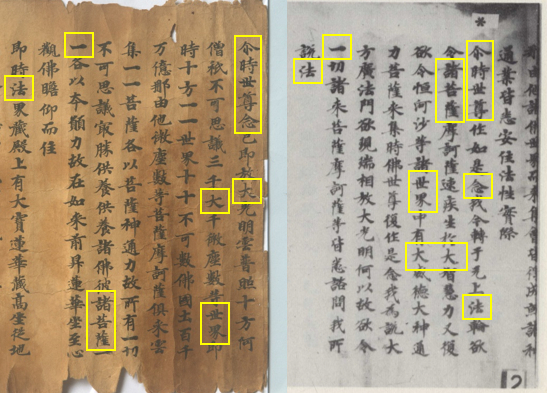 尒時世尊念已即放大光明雲普照十方阿
僧秖不可思議三千大千微塵數等世界即
時十方一一世界十十不可數佛國土百千
万億那由他微塵數等菩薩摩訶薩俱來雲
集一一菩薩各以菩薩神通力故所有一切
不可思議㝡勝供養供養諸佛彼諸菩薩
一各以本願力故在如来前昇蓮華坐至心
觀佛瞻仰而住
即時法界藏殿上有大寶蓮華藏高坐徒地
*
通業皆悉安住法性實際
尒時世尊住如是念我今轉于无上法輪欲
令諸菩薩摩訶薩速疾生於大智慧力又復
欲令恒河沙等諸世界中有大威德大神通
力菩薩来集時佛世尊復作是念我為說大
方廣法門欲現瑞相放大光明何以故欲令
一切諸来菩薩摩訶薩等皆悉諮問我所
說法